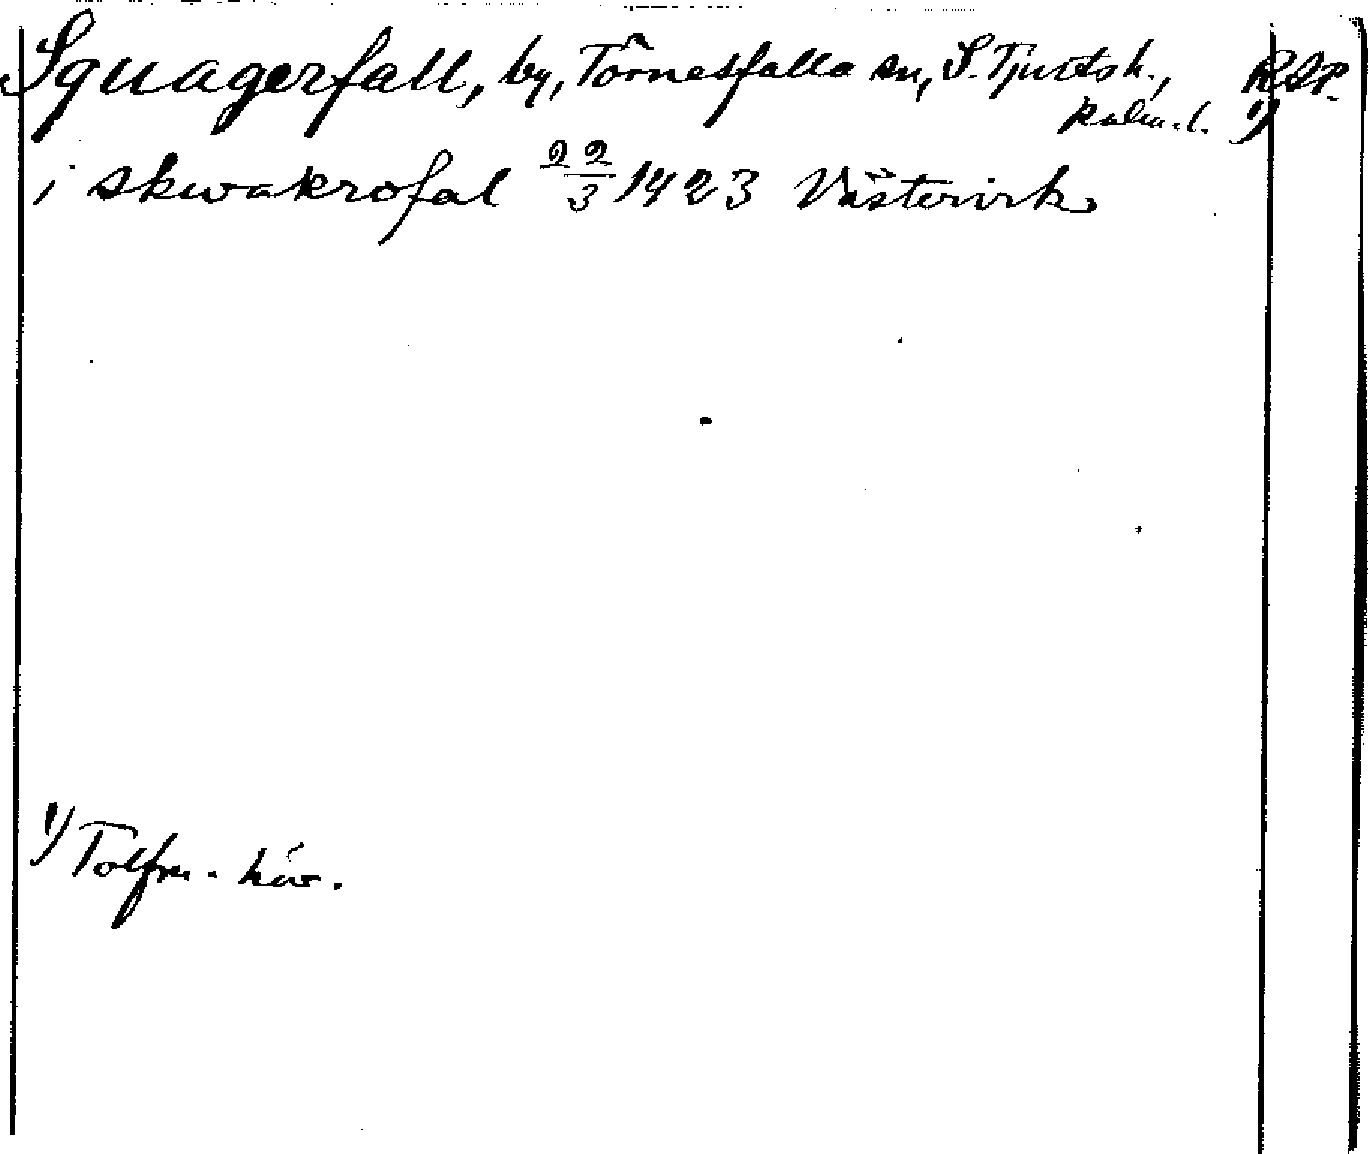 Squagerfall, by, Törnesfalla sn, S. Tjustsh., RAP.
Kalm. l. 1)
i skwakrofal 22/3 1423 Västervik
1) Tolfm. -häv.